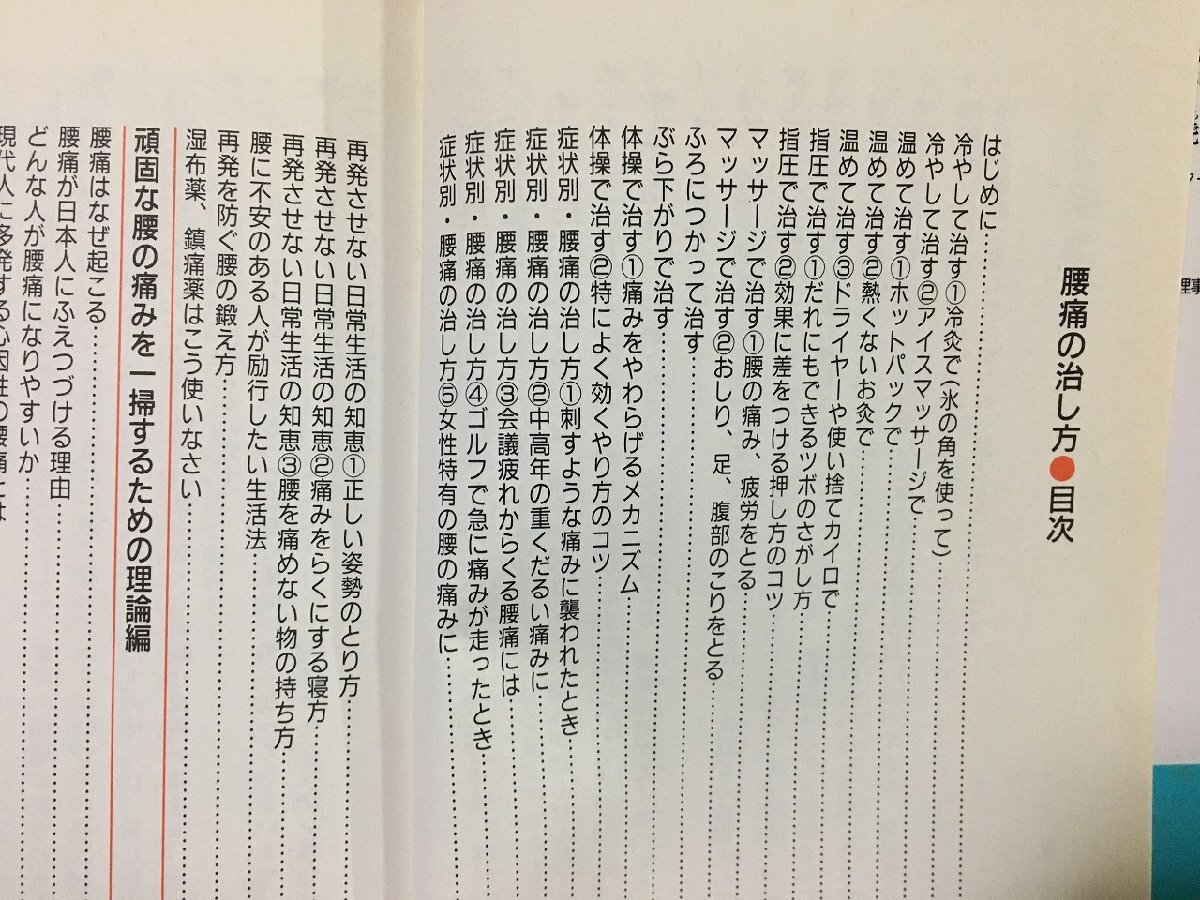 腰痛の治し方●目次
はじめに
冷やして治す①冷灸で(氷の角を使って)
冷やして治す②アイスマッサージで
温めて治す①ホットパックで
温めて治す②熱くないお灸で
温めて治す③ドライヤーや使い捨てカイロで
指圧で治す①だれにもできるツボのさがし方
指圧で治す②効果に差をつける押し方のコツ
マッサージで治す①腰の痛み、疲労をとる
マッサージで治す②おしり、足、腹部のこりをとる
ふろにつかって治す
ぶら下がりで治す
体操で治す①痛みをやわらげるメカニズム
体操で治す②特によく効くやり方のコツ
症状別・腰痛の治し方①刺すような痛みに襲われたとき
症状別・腰痛の治し方②中高年の重くだるい痛みに
症状別・腰痛の治し方③会議疲れからくる腰痛には
症状別・腰痛の治し方④ゴルフで急に痛みが走ったとき
症状別・腰痛の治し方⑤女性特有の腰の痛みに
再発させない日常生活の知恵①正しい姿勢のとり方
再発させない日常生活の知恵②痛みをらくにする寝方
再発させない日常生活の知恵③腰を痛めない物の持ち方
腰に不安のある人が励行したい生活法
再発を防ぐ腰の鍛え方
湿布薬、鎮痛薬はこう使いなさい
頑固な腰の痛みを一掃するための理論編
腰痛はなぜ起こる
腰痛が日本人にふえつづける理由
どんな人が腰痛になりやすいか
現代人に多発する心因性の腰痛とは
理事